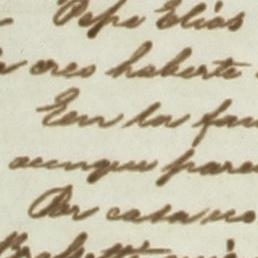 Pepe Elias
creo haberte
la fam
aunque pare
Por casa no